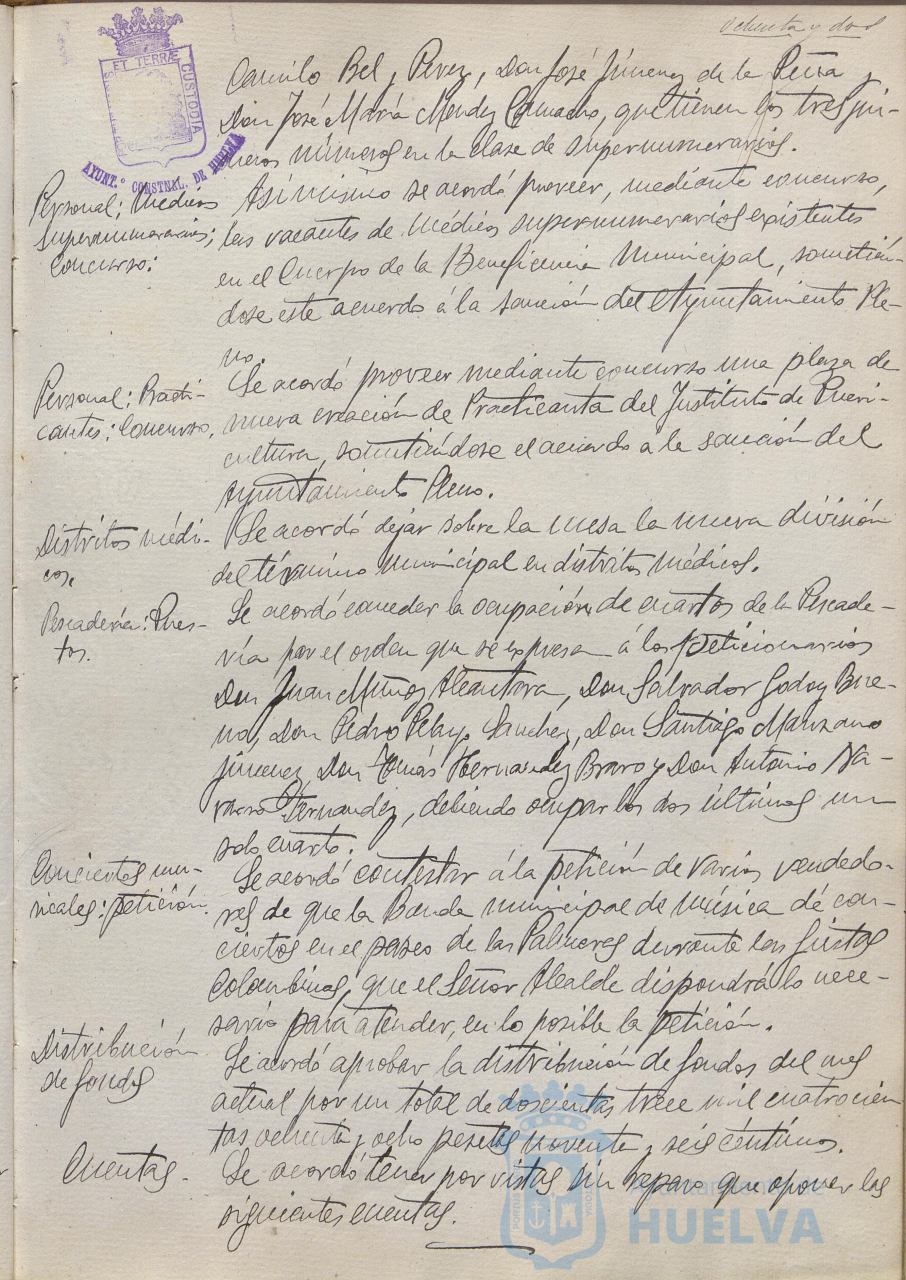 ochenta y dos
ET TERRÆ
CUSTODIA
AYUNT.º CONSTNAL. DE HUELVA
Camilo Bel y Perez, Don José Jimenez de la Peña y
Don José María Mendez Camacho, que tienen los tres pri-
meros números en la clase de supernumerarios.
Personal; Médicos
Supernumerarios;
Concurso:
Asimismo se acordó proveer, mediante concurso,
las vacantes de Médicos supernumerarios existentes
en el Cuerpo de la Beneficencia Municipal, sometién-
dose este acuerdo á la sanción del Ayuntamiento Ple-
no.
Personal: Practi-
cantes: Concurso.
Se acordó proveer mediante concurso una plaza de
nueva creación de Practicanta del Instituto de Pueri-
cultura, sometiéndose el acuerdo a la sanción del
Ayuntamiento Pleno.
Distritos médi-
cos.
Se acordó dejar sobre la mesa la nueva división
del término municipal en distritos médicos.
Pescadería: Pues-
tos.
Se acordó conceder la ocupación de cuartos de la Pescade-
ría por el orden que se expresa á los peticionarios
Don Juan Muñoz Alcantara, Don Salvador Godoy Bue-
no, Don Pedro Pelayo Sanchez, Don Santiago Manzano
Jimenez, Don Tomás Hernandez Bravo y Don Antonio Na-
varro Fernandez, debiendo ocupar los dos últimos un
solo cuarto.
Conciertos mu-
sicales: petición.
Se acordó contestar á la petición de varios vendedo-
res de que la Banda municipal de música dé con-
ciertos en el paseo de las Palmeras durante las fiestas
Colombinas, que el Señor Alcalde dispondrá lo nece-
sario para atender, en lo posible la petición.
Distribución
de fondos
Se acordó aprobar la distribución de fondos del mes
actual por un total de doscientas trece mil cuatrocien
tas ochenta y ocho pesetas noventa y seis céntimos.
Cuentas.
Se acordó tener por vistas sin reparo que oponer las
siguientes cuentas.
Ayuntamiento de
HUELVA